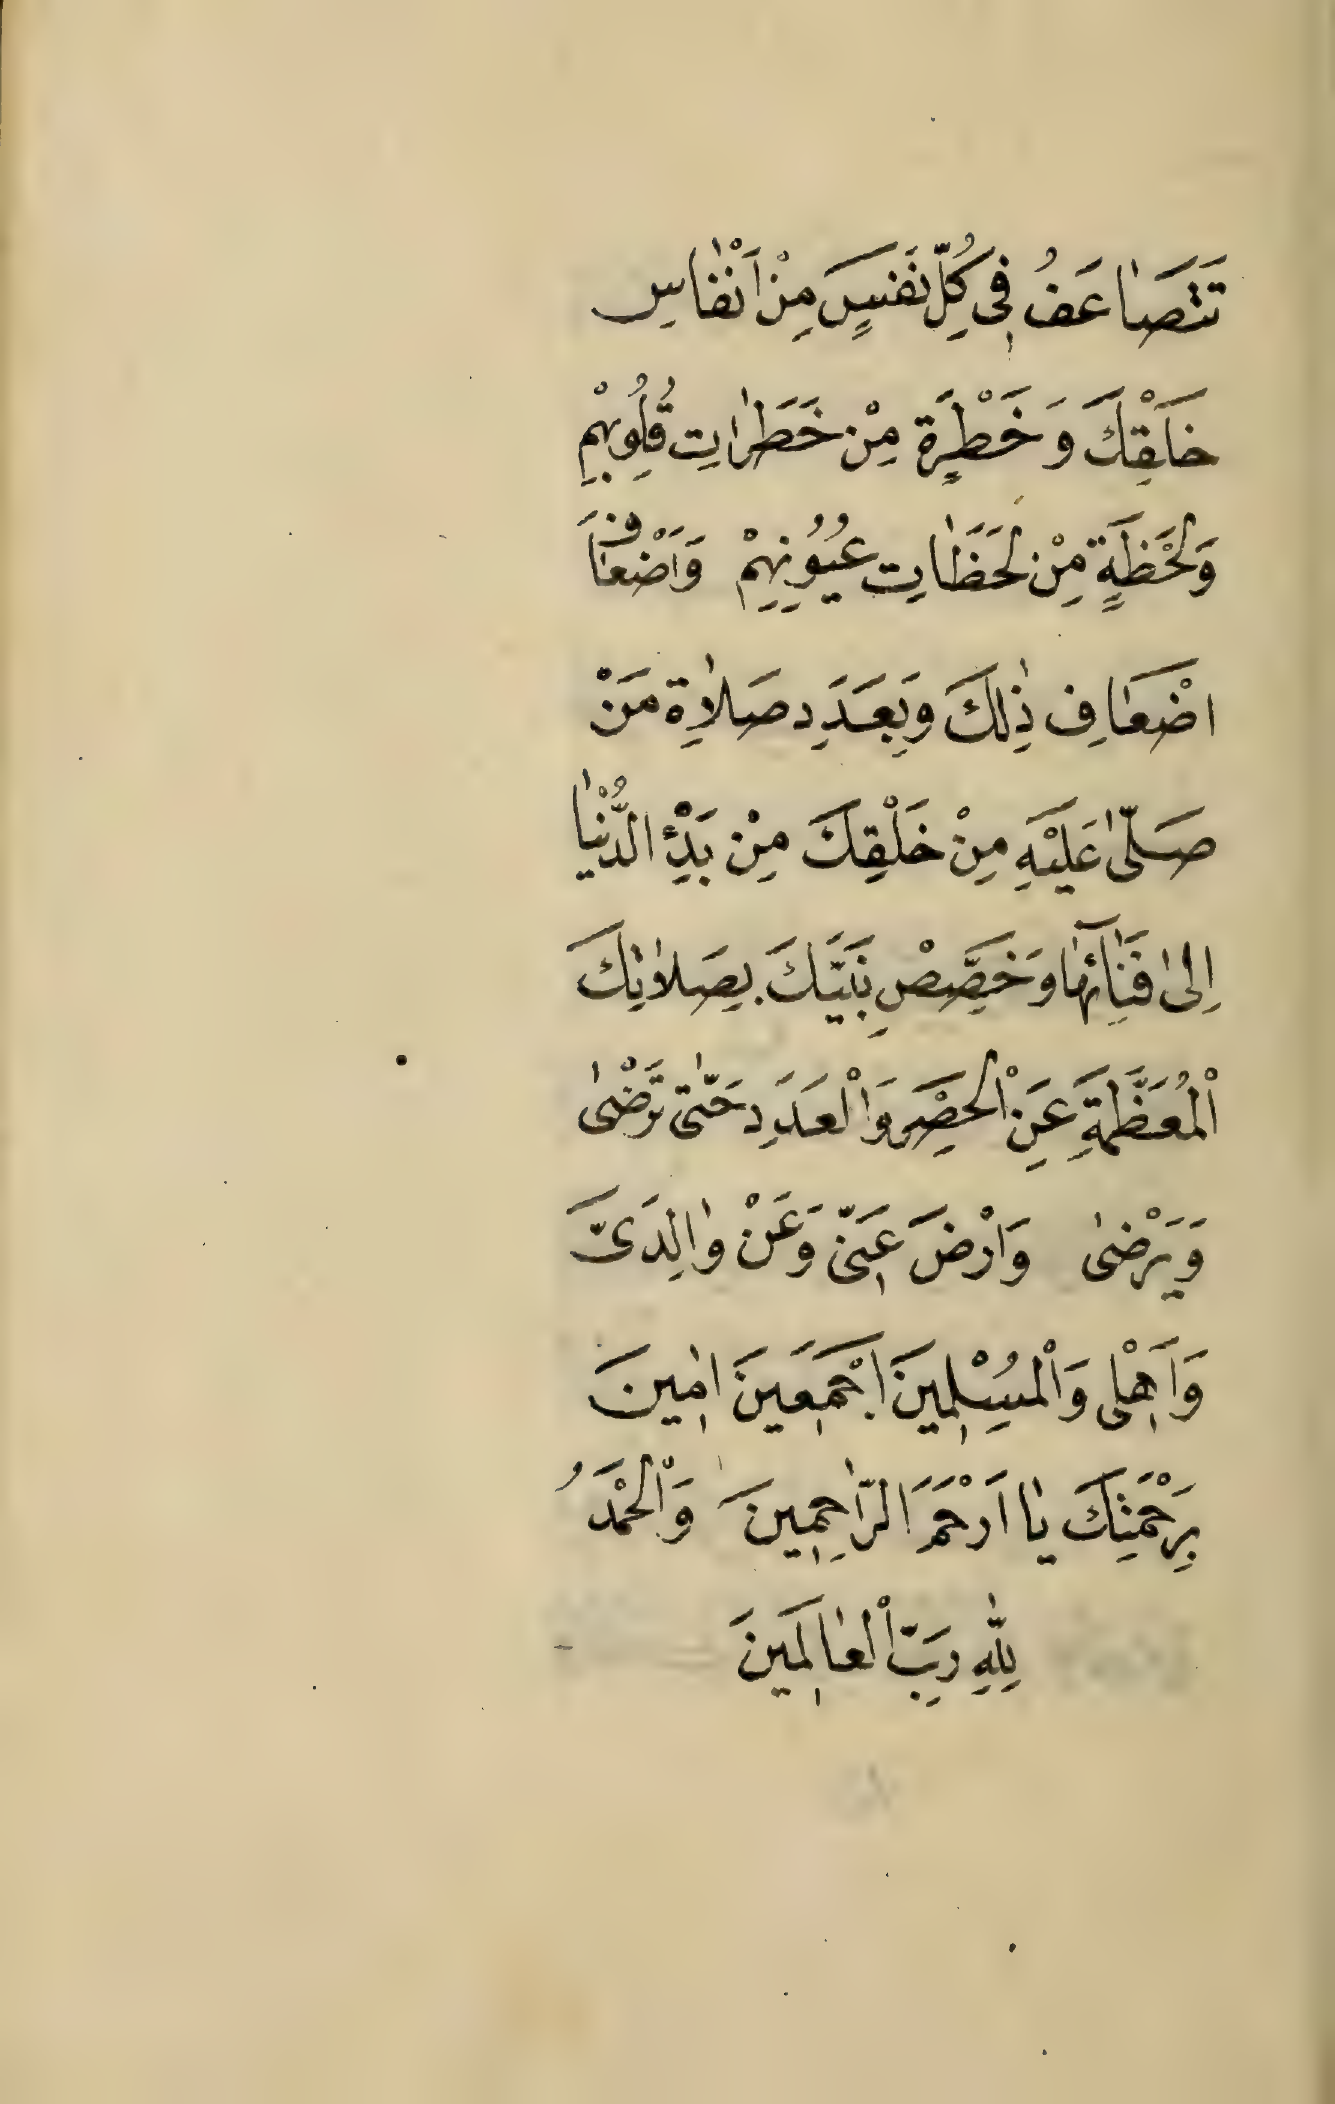 تَتَصَاعَفُ فِى كُلِّ نَفَسٍ مِنْ اَنْفَاسِ
خَلْقِكَ وَ خَطْرَةٍ مِنْ خَطَرَاتِ قُلُوبِهِمْ
وَلَحْظَةٍ مِنْ لَحَظَاتِ عُيُونِهِمْ وَاَضْعَافَ
اَضْعَافِ ذٰلِكَ وَبِعَدَدِ صَلاٰةِ مَنْ
صَلّٰى عَلَيْهِ مِنْ خَلْقِكَ مِنْ بَدْءِ الدُّنْيَا
اِلىٰ فَنَائِهَا وَخَصِّصْ نَبِيَّكَ بِصَلاٰتِكَ
الْمُعَظَّمَةِ عَنِ الْحَصْرِ وَالْعَدَدِ حَتّٰى تَرْضٰى
وَيَرْضٰى وَارْضَ عَنِّى وَعَنْ وٰالِدَىَّ
وَاَهْلِى وَالْمُسْلِمِينَ اَجْمَعِينَ اٰمِينَ
بِرَحْمَتِكَ يَا اَرْحَمَ الرَّاحِمِينَ وَالْحَمْدُ
لِلّٰهِ رَبِّ الْعَالَمِينَ